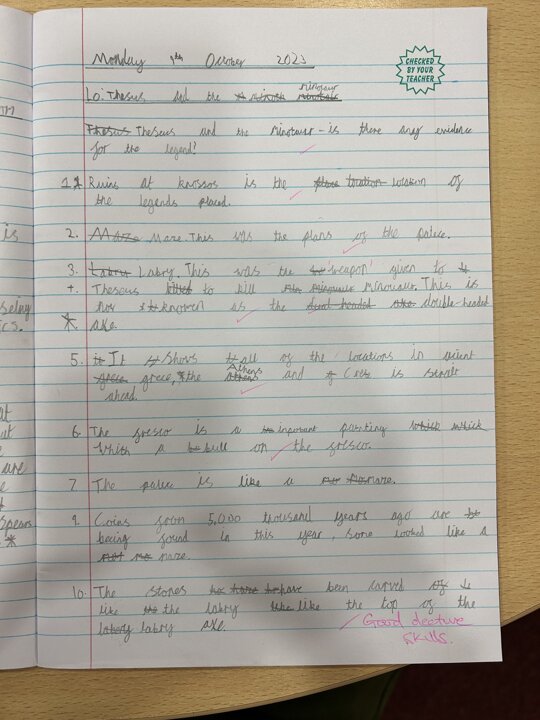 Monday 9th October 2023
CHECKED
BY YOUR
TEACHER
Lo: Theseus and the minotaur
Theseus and the Minotaur - is there any evidence
for the legend?
1. Ruins at knossos is the location of
the legends placed.
2. Maze. This was the plans of the palace.
3. Labry. This was the 'weapon' given to
Theseus to kill minotaur. This is
now known as the double-headed
axe.
5. It shows all of the locations in
grece, the Athens and Crete is
ahead.
6. The fresco is a important painting
which a bull on the fresco.
7. The palace is like a maze.
9. Coins from 5,000 thousand years ago are
being found in this year, some looked like a
maze.
10. The stones have been carved of
like the labry like the top of the
labry axe.
Good dective
skills.
is